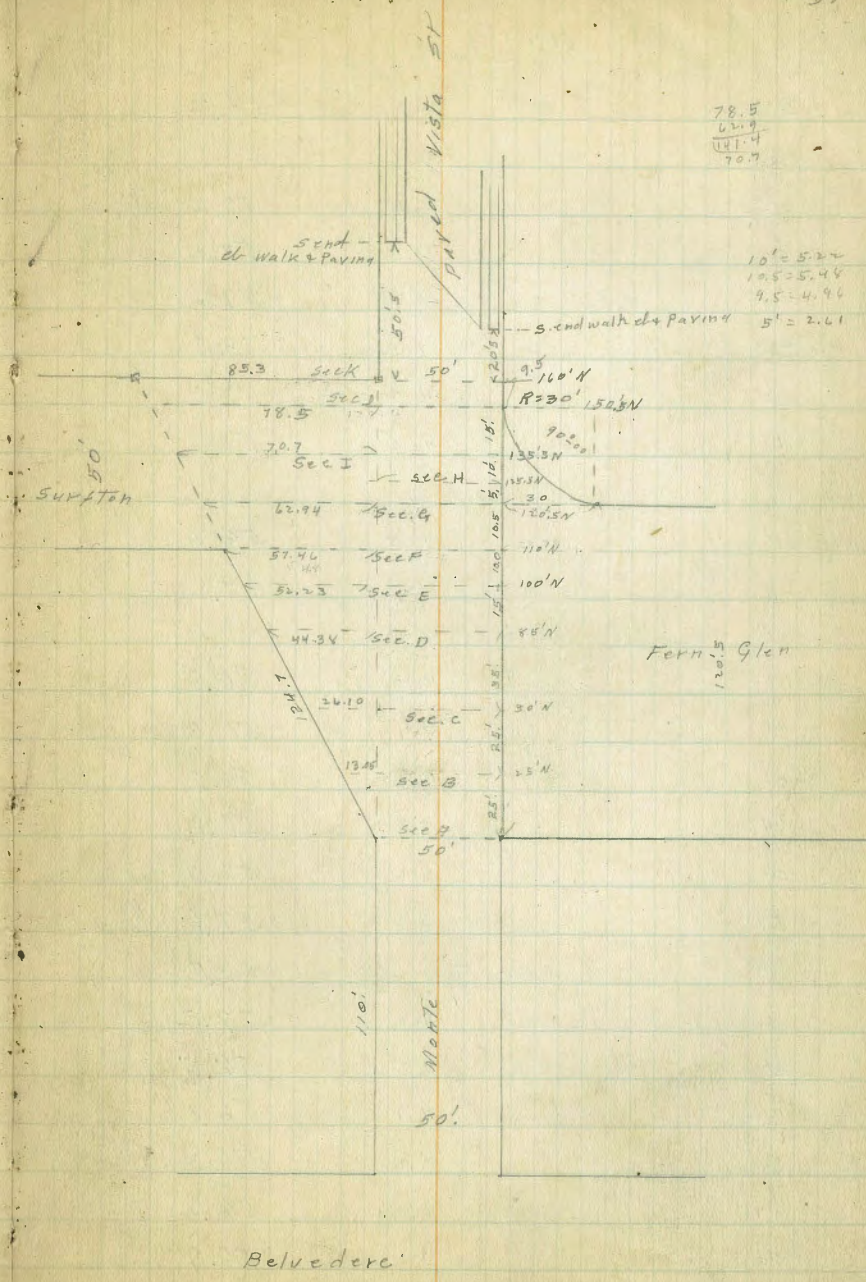 78.5
62.9
141.4
70.7
Paved Vista St
S end
cb walk & Paving
50.5
10' = 5.22
10.5 = 5.48
9.5 = 4.96
5' = 2.61
S. end walk cb & Paving
20.5
85.3 Sec K 50' 9.5 160'N
78.5 Sec J R=30' 150.5N
15'
90°00'
70.7 Sec I 135.5N
50'
10'
Sec H 125.5N
Surfton
5'
30
62.94 Sec. G 120.5N
10.5
57.46 Sec F 110'N
10.0
52.23 Sec E 100'N
15'
44.38 Sec. D 85'N
Fern Glen
120.5
35'
124.7
26.10 Sec. C 50'N
25'
13.05 Sec B 25'N
25'
Sec A
50'
110'
Monte
50'
Belvedere